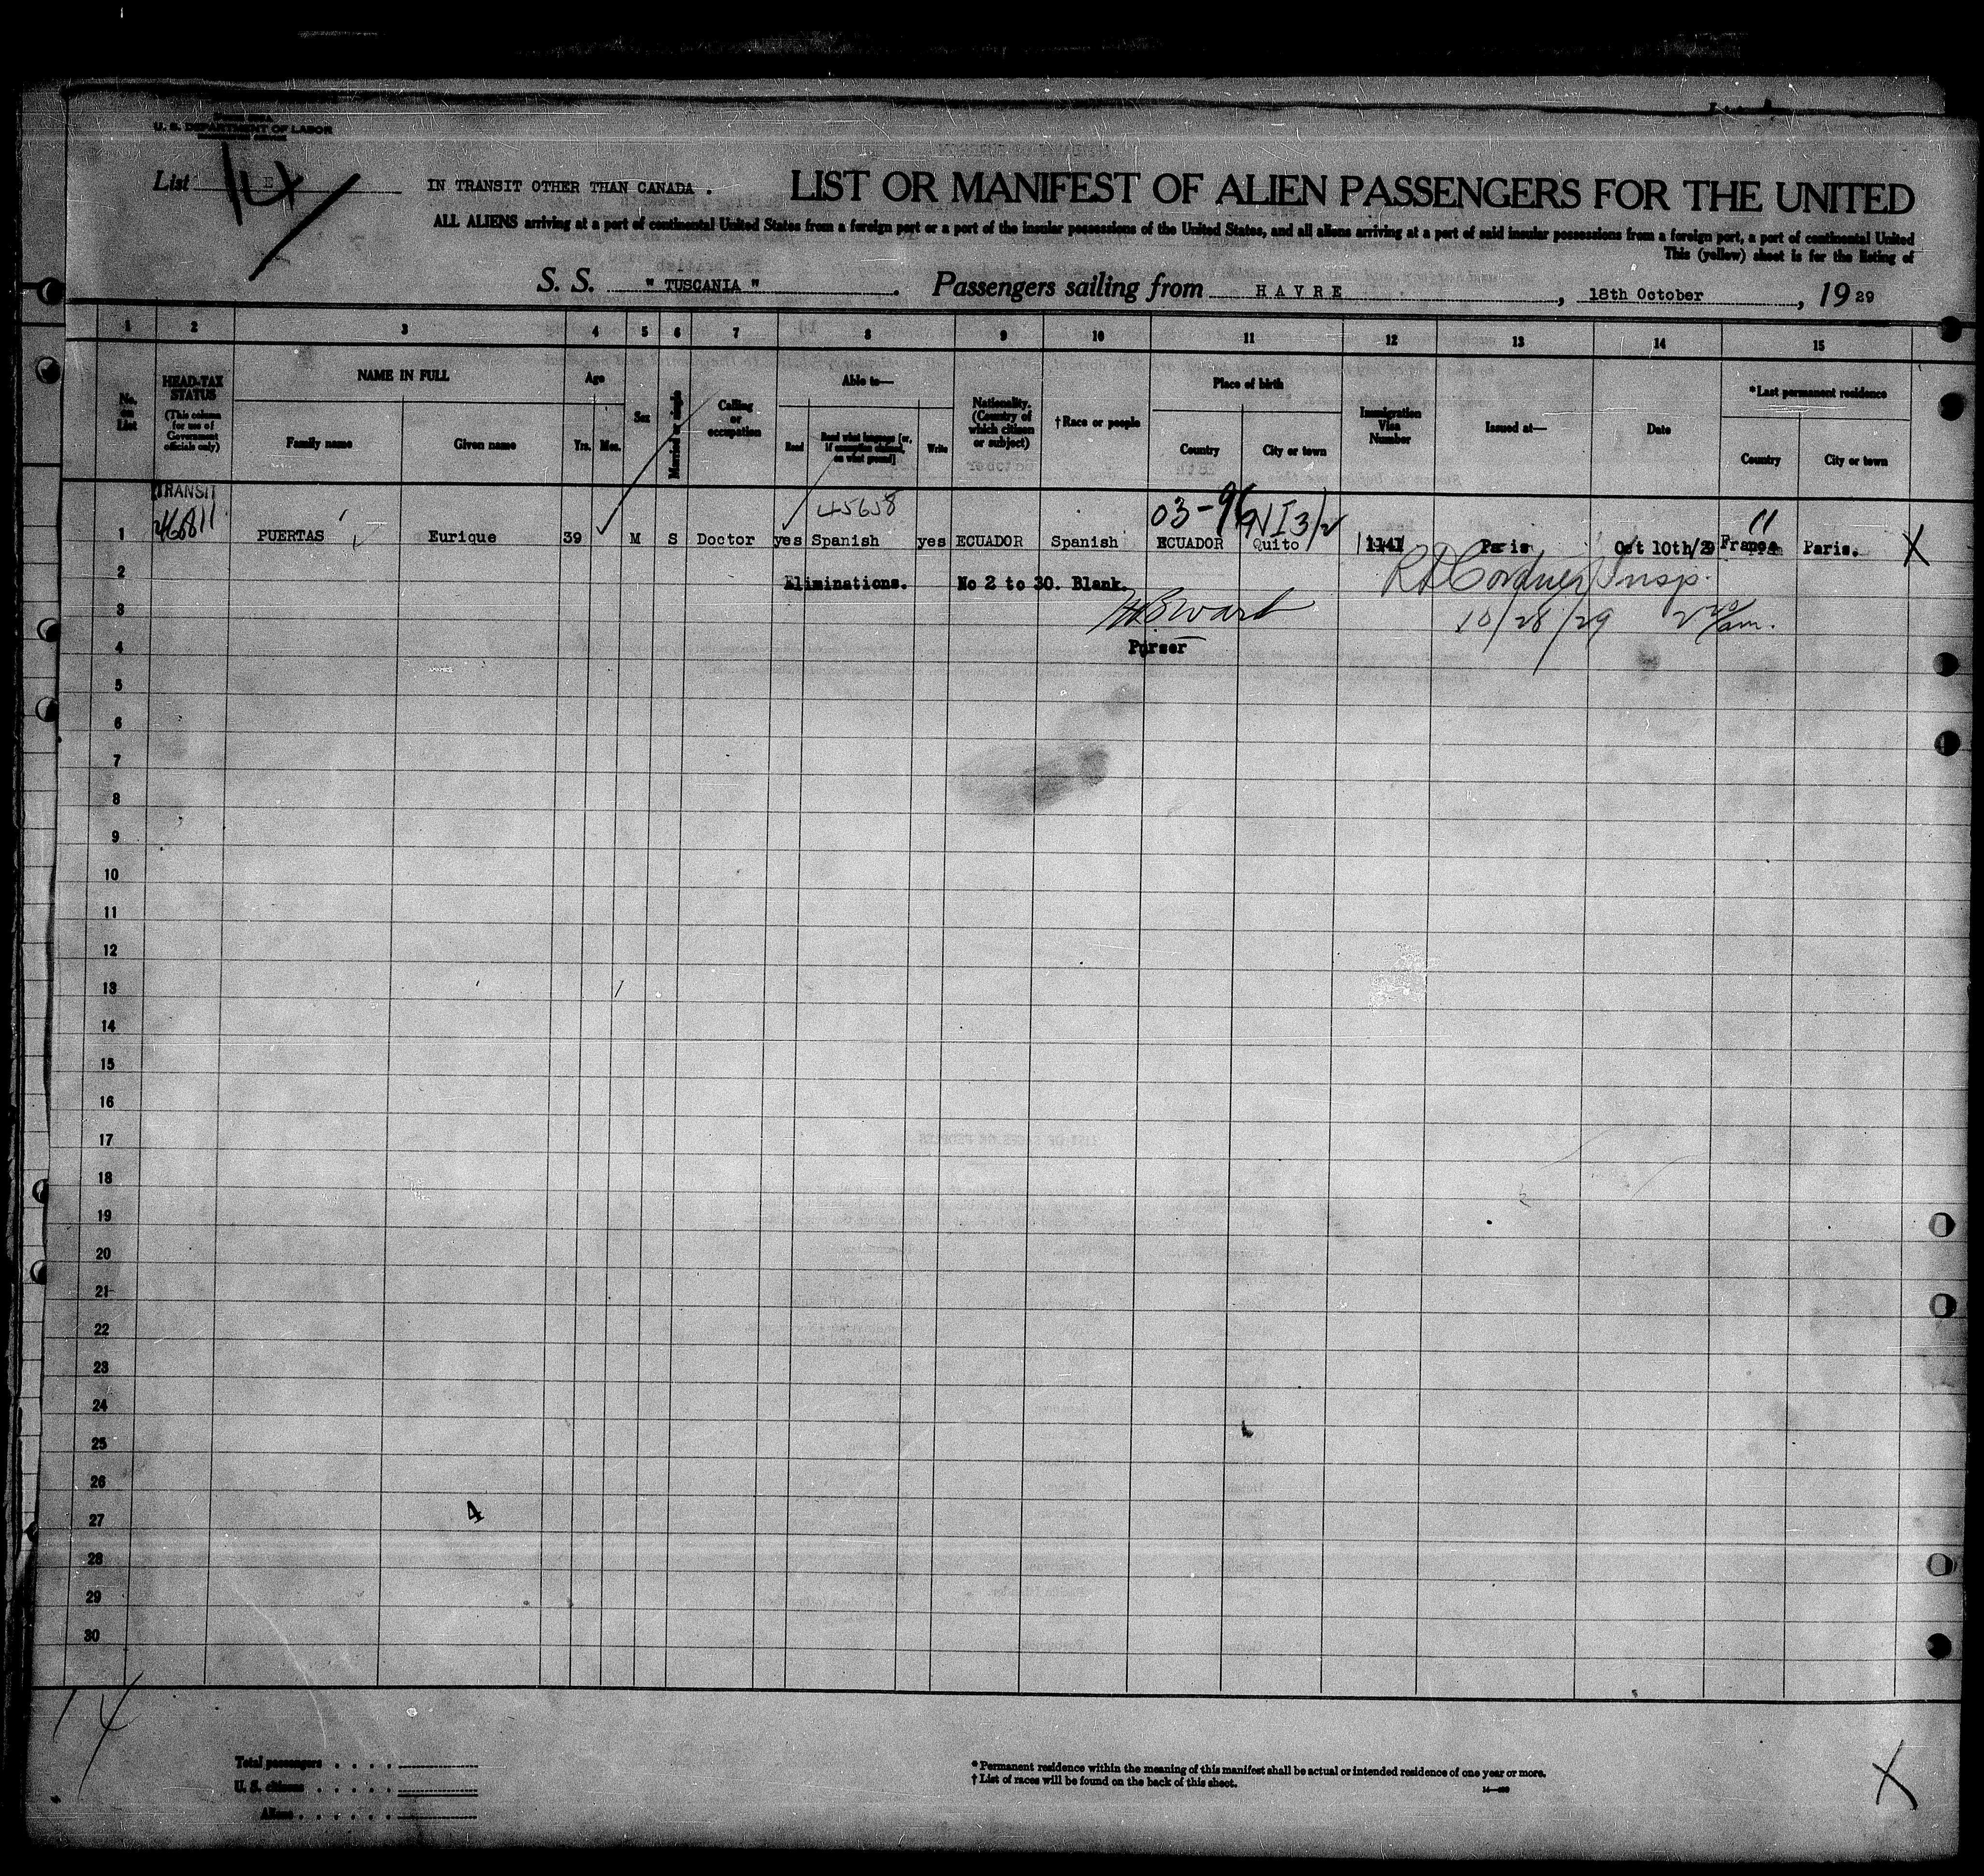 U. S. DEPARTMENT OF LABOR
List 14
IN TRANSIT OTHER THAN CANADA . LIST OR MANIFEST OF ALIEN PASSENGERS FOR THE UNITED
ALL ALIENS arriving at a port of continental United States from a foreign port or a port of the insular possessions of the United States, and all aliens arriving at a port of said insular possessions from a foreign port, a port of continental United
This (yellow) sheet is for the listing of
S. S. " TUSCANIA ". Passengers sailing from H A V R E , 18th October , 19 29
1 2 3 4 5 6 7 8 9 10 11 12 13 14 15
No. on List
HEAD-TAX STATUS
(This column for use of Government officials only)
NAME IN FULL
Family name Given name
Age
Yrs. Mos.
Sex
Married or single
Calling or occupation
Able to—
Read Read what language [or, if exemption claimed, on what ground] Write
Nationality. (Country of which citizen or subject)
†Race or people
Place of birth
Country City or town
Immigration Visa Number
Issued at—
Date
*Last permanent residence
Country City or town
TRANSIT
45658 03-96 NI3/2 11
1 PUERTAS Eurique 39 M S Doctor yes Spanish yes ECUADOR Spanish ECUADOR Quito 1141 Paris Oct 10th/29 France Paris. X
2 Eliminations. No 2 to 30. Blank. Insp.
3 10/28/29 am.
4 Purser
5
6
7
8
9
10
11
12
13
14
15
16
17
18
19
20
21
22
23
24
25
26
27 4
28
29
30
14
Total passengers
U. S. citizens
Aliens
* Permanent residence within the meaning of this manifest shall be actual or intended residence of one year or more.
† List of races will be found on the back of this sheet.
X